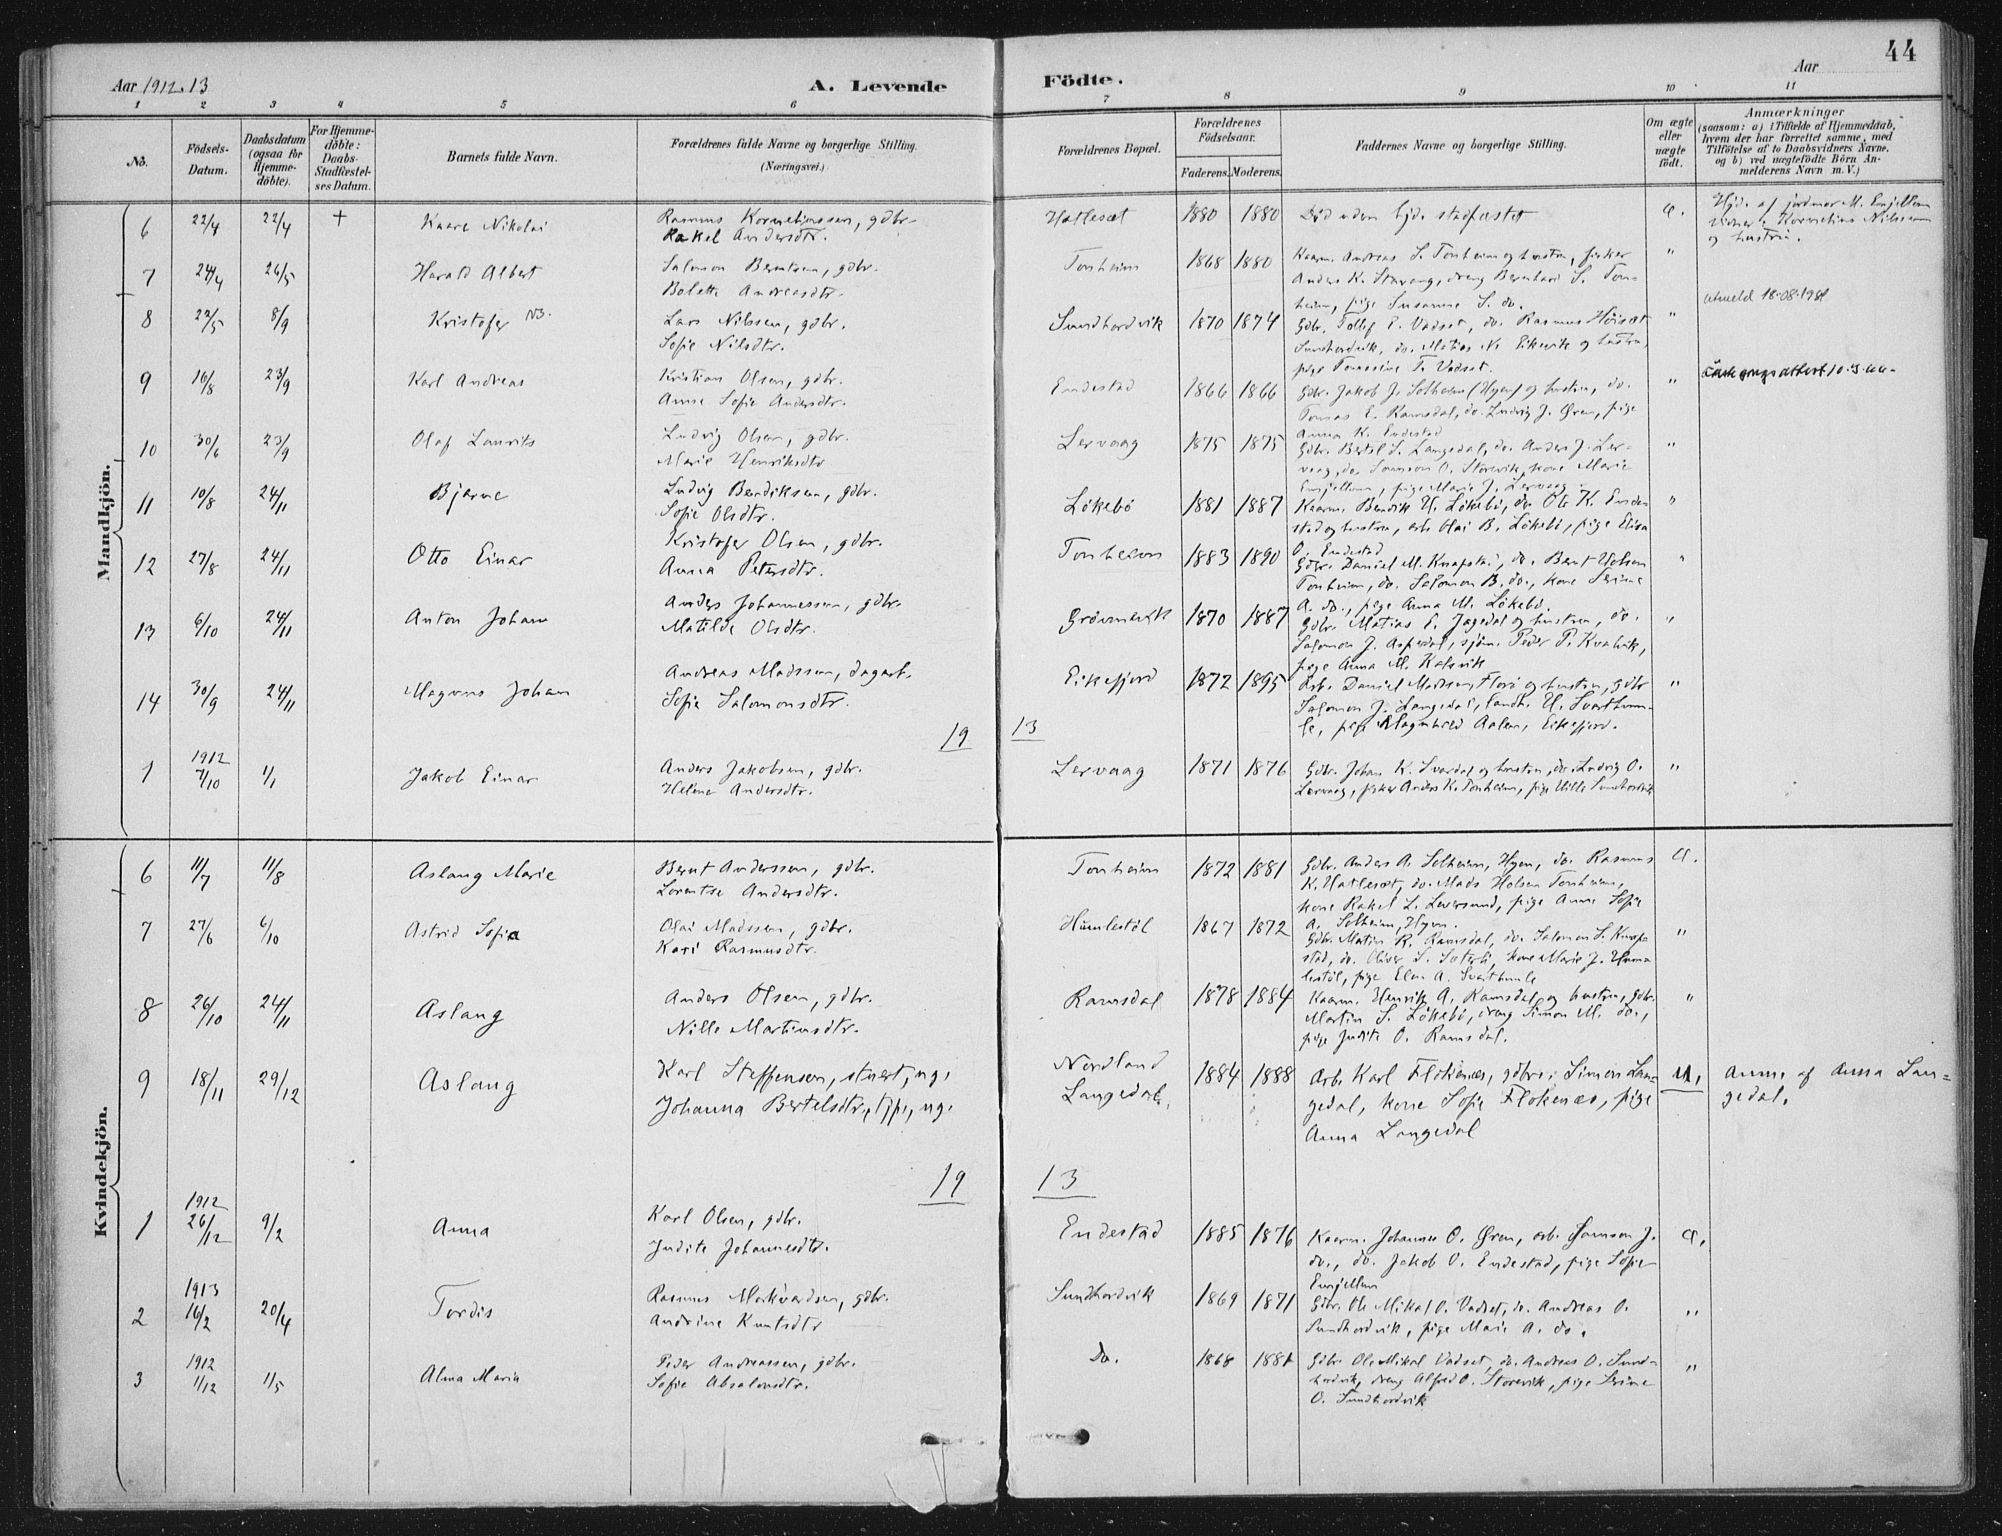 44
Aar 1912. 13
A. Levende
Födte.
Aar
1 2 3 4 5 6 7 8 9 10 11
No.
Födsels-Datum.
Daabsdatum (ogsaa for Hjemme-döbte).
For Hjemme-döbte: Daabs-Stadfæstel-ses Datum.
Barnets fulde Navn.
Forældrenes fulde Navne og borgerlige Stilling.
(Næringsvei.)
Forældrenes Bopæl.
Forældrenes Födselsaar.
Faderens. Moderens.
Faddernes Navne og borgerlige Stilling.
Om ægte eller uægte födt.
Anmærkninger
(saasom: a) i Tilfælde af Hjemmedaab, hvem der har forrettet samme, med Tilföielse af to Daabsvidners Navne, og b) ved uægtefödte Börn An-melderens Navn m.V.)
Mandkjön.
6 22/4 22/4 + Kaare Nikolai Rasmus Korneliussen, gdbr. Hatleset 1880 1880 Död uden hjd. stadfæstet a. Hjd. af jordmor M. Emjellem
Rakel Andersdtr. vidner: Kornelius Nilssen
og hustru.
7 24/4 26/5 Harald Albert Salomon Berntsen, gdbr. Tonheim 1868 1880 Kaarm. Andreas S. Tonheim og hustru, fisker "
Bolette Andreasdtr. Anders K. Starvang, dreng Bernhard S. Ton-
heim, pige Susanne S. do.
8 22/5 8/9 Kristofer NB. Lars Nilssen, gdbr. Sundhordvik 1870 1874 Gdbr. Tollef E. Vadset, do. Rasmus Höiset " utmeld 18.08.1981
Sofie Nilsdtr. Sundhordvik, do. Matias N. Eikevik og hustru,
pige Tomasine T. Vadset.
9 16/8 23/9 Karl Andreas Kristian Olsen, gdbr. Endestad 1866 1866 Gdbr. Jakob J. Solheim (Hyen) og hustru, do. "
Anne Sofie Andersdtr. Tomas E. Ramsdal, do. Ludvig J. Øren, pige
Anna K. Endestad
10 30/6 23/9 Olaf Laurits Ludvig Olsen, gdbr. Lervaag 1875 1875 Gdbr. Bertel S. Langedal, do. Anders J. Ler- "
Marie Henriksdtr. vaag, do. Samson O. Storevik, kone Marie
Emjellem, pige Marie J. Lervaag.
11 10/8 24/11 Bjarne Ludvig Bendiksen, gdbr. Lökebö 1881 1887 Kaarm. Bendik U. Lökebö, do. Ole K. Ende- "
Sofie Olsdtr. stad og hustru, arb. Olai B. Lökebö, pige Elisa
O. Endestad
12 27/8 24/11 Otto Einar Kristofer Olsen, gdbr. Tonheim 1883 1890 Gdbr. Daniel M. Knapstad, do. Bernt Holsen "
Anna Petersdtr. Tonheim, do. Salomon B. do., kone Serine
A. do., pige Anna M. Lökebö.
13 6/10 24/11 Anton Johan Anders Johannessen, gdbr. 1870 1887 Gdbr. Matias E. Jagedal og hustru, do. "
Matilde Olsdtr. Salomon J. Aspedal, sjöm. Peder P. Kvalvik,
pige Anna M. Kalsvik
14 30/9 24/11 Magnus Johan Andreas Madssen, dagarb. Eikefjord 1872 1895 Arb. Daniel Madssen Florö og hustru, gdbr "
Sofie Salomonsdtr. Salomon J. Langedal, landh. U. Svarthum-
le, pige Magnhild Aalen, Eikefjord.
19 13
1 1912 7/10 1/1 Jakob Einar Anders Jakobsen, gdbr. Lervaag 1871 1876 Gdbr. Johan K. Svardal og hustru, do. Ludvig O. "
Helene Andersdtr. Lervaag, fisker Anders K. Tonheim, pige Nille Sundhordvik
Kvindekjön.
6 11/7 11/8 Aslaug Marie Bernt Anderssen, gdbr. Tonheim 1872 1881 Gdbr. Anders A. Solheim, Hyen, do. Rasmus a.
Lorentse Andersdtr. K. Hatleset, do. Mads Holsen Tonheim,
kone Rakel L. Leversund, pige Anne Sofie
A. Solheim, Hyen.
7 27/6 6/10 Astrid Sofia Olai Madssen, gdbr. Humlestöl 1867 1872 Gdbr. Matin R. Ramsdal, do. Salomon S. Knap- "
Kari Rasmusdtr. stad, do. Oliver S. Sæterli, kone Marie J. Hum-
lestöl, pige Elen A. Svarthumle
8 26/10 24/11 Aslaug Anders Olsen, gdbr. Ramsdal 1878 1884 Kaarm. Henrik A. Ramsdal og hustru, gdbr. "
Nille Martinsdtr. Martin S. Lökebö, dreng Simon M. do.,
pige Judite O. Ramsdal.
9 18/11 29/12 Aslaug Karl Steffensen, stuert, ug. Nordland 1884 1888 Arb. Karl Flokenes, gdbr. Simon Lan- U. Anm. af Anna Lan-
Johanna Bertelsdtr., tjp., ug. Langedal. gedal, kone Sofie Flokenes, pige gedal.
Anna Langedal
19 13
1 1912 26/12 9/2 Anna Karl Olsen, gdbr. Endestad 1885 1876 Kaarm. Johannes O. Øren, arb. Samson J. a.
Judite Johannesdtr. do., do. Jakob O. Endestad, pige Sofie
Emjellem
2 1913 16/2 20/4 Tordis Rasmus Markvardsen, gdbr. Sundhordvik 1869 1871 Gdbr. Ole Mikal O. Vadset, do. Andreas O. "
Andrine Knutsdtr Sundhordvik, pige Marie A. do.
3 1912 1/12 1/5 Alma Maria Peder Andreassen, gdbr. Do. 1868 1881 Gdbr. Ole Mikal Vadset, do. Andreas O. Sund- "
Sofie Absalonsdtr. hordvik, dreng Alfred O. Storevik, pige Serine
O. Sundhordvik